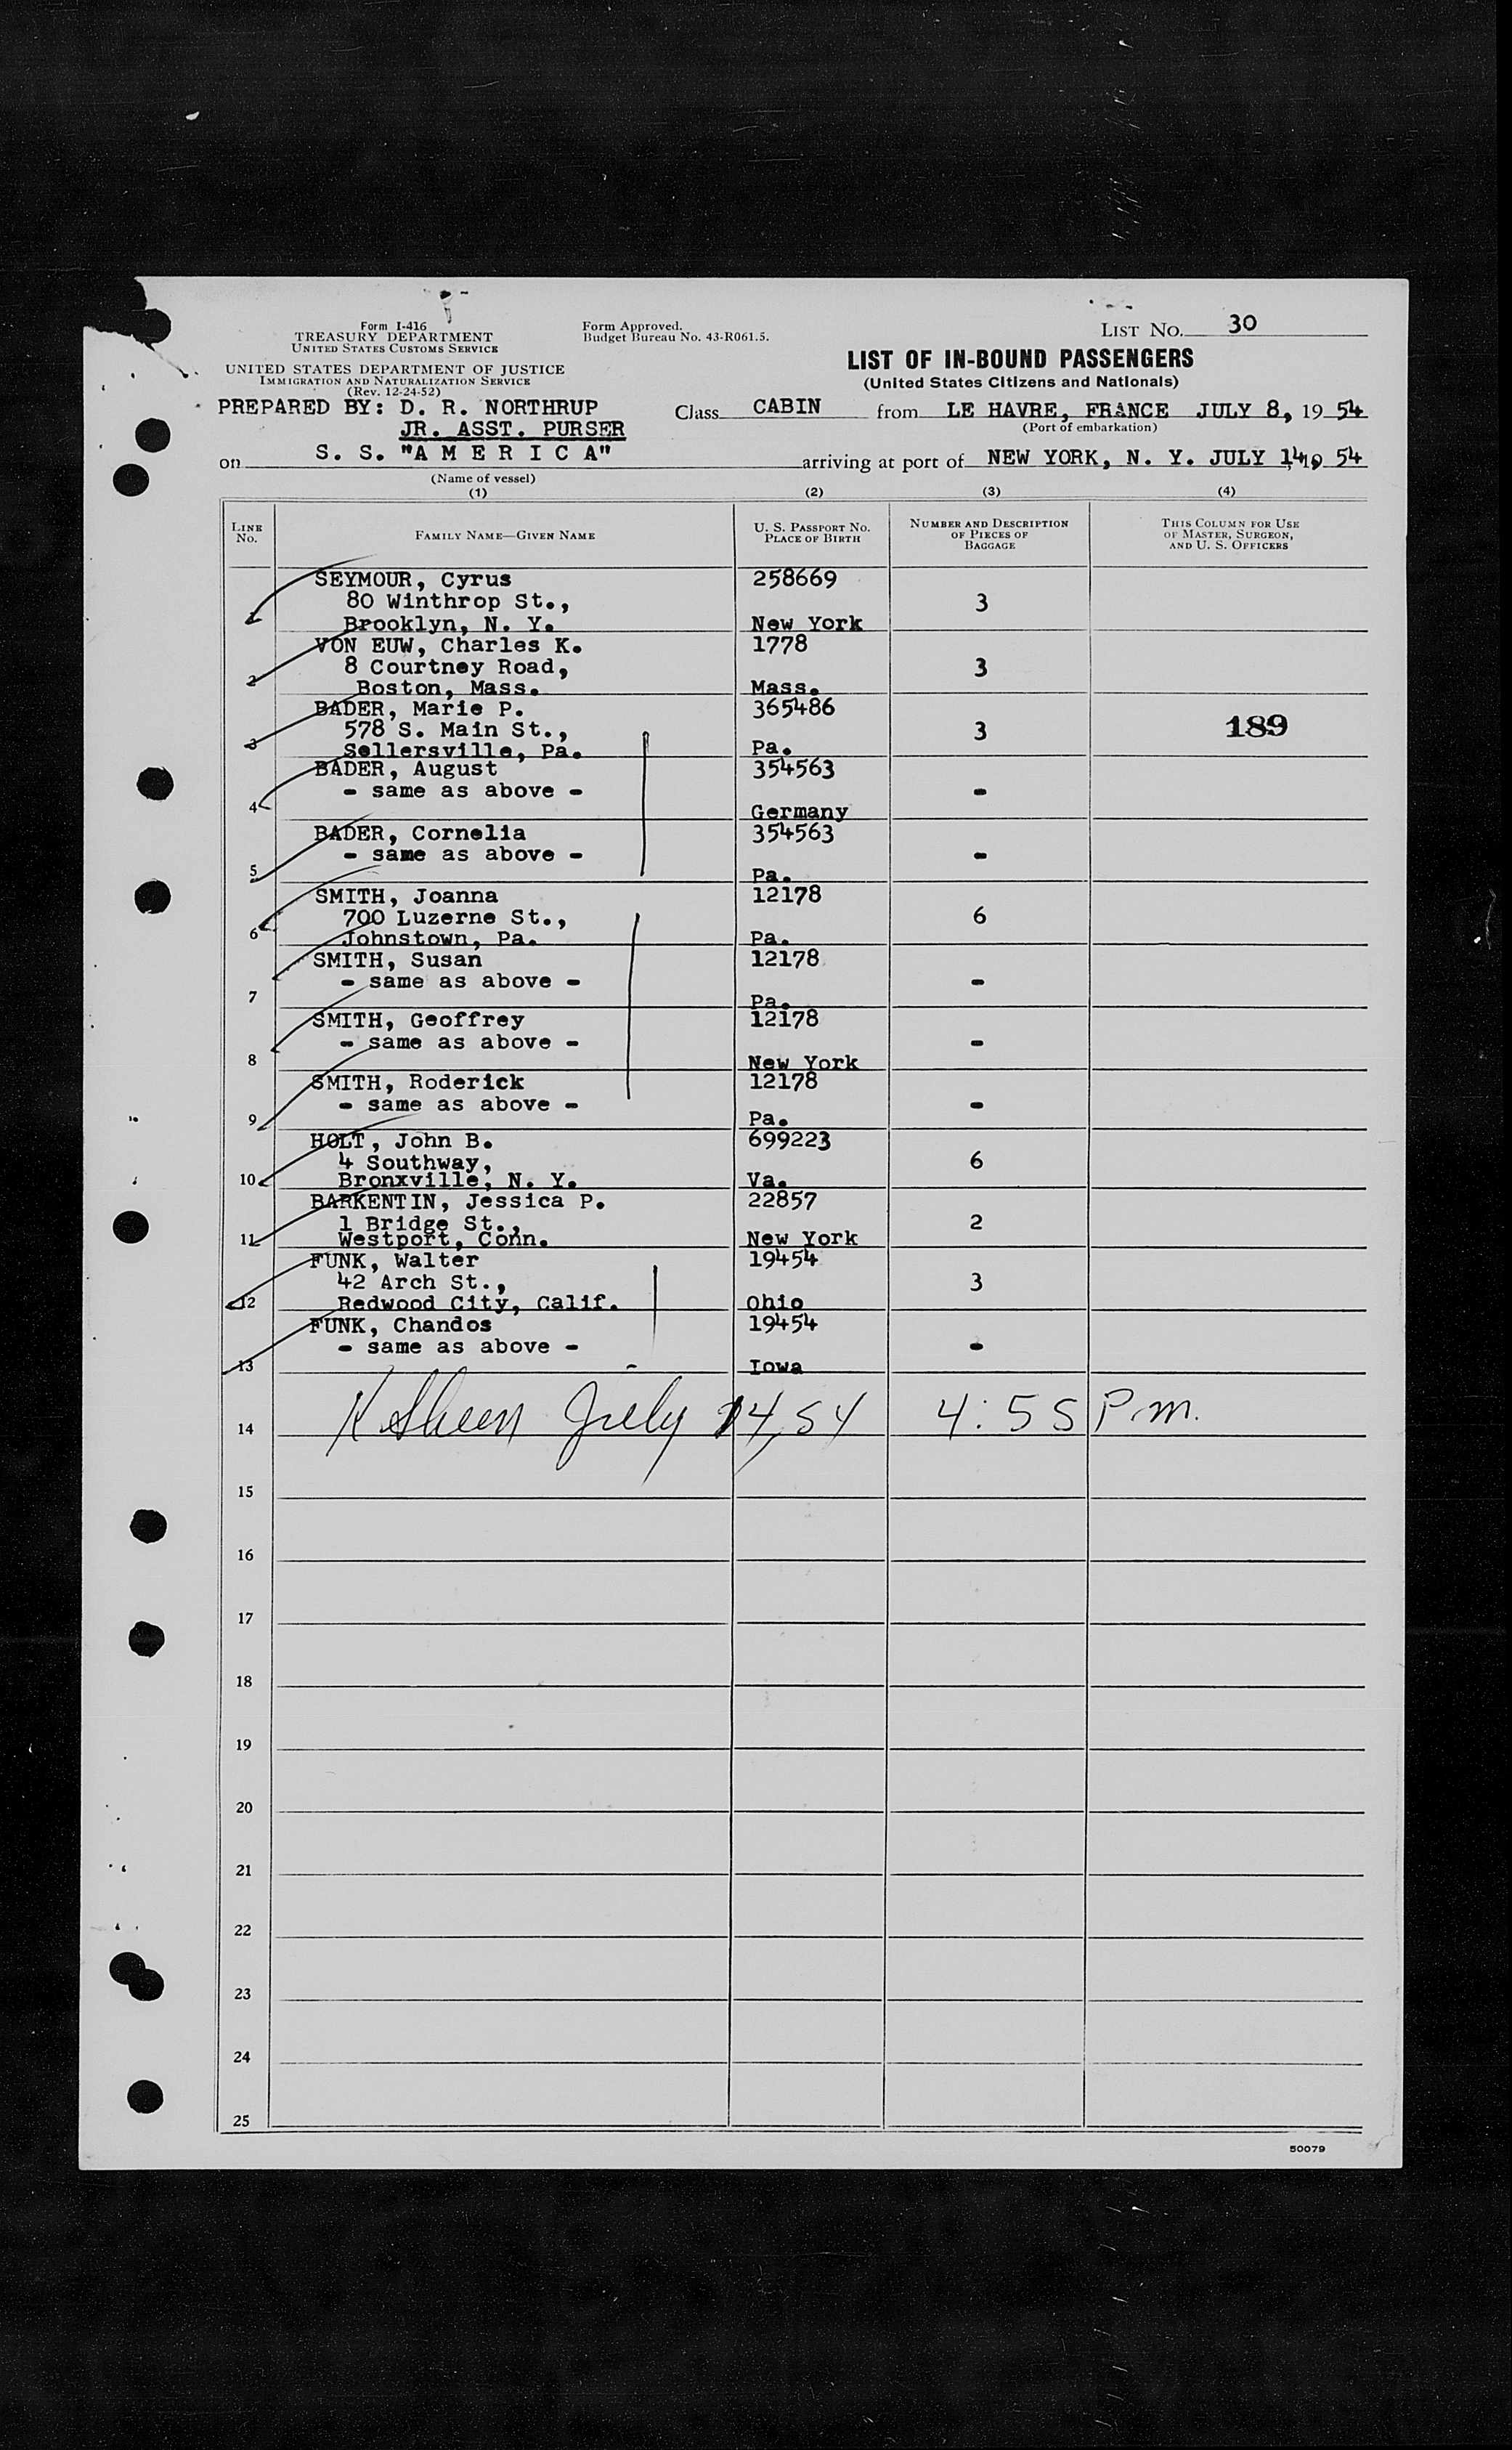 Form I-416
TREASURY DEPARTMENT
UNITED STATES CUSTOMS SERVICE
UNITED STATES DEPARTMENT OF JUSTICE
IMMIGRATION AND NATURALIZATION SERVICE
(Rev. 12-24-52)
Form Approved.
Budget Bureau No. 43-R061.5.
LIST NO. 30
LIST OF IN-BOUND PASSENGERS
(United States Citizens and Nationals)
PREPARED BY: D. R. NORTHRUP
JR. ASST. PURSER
Class CABIN from LE HAVRE, FRANCE JULY 8, 19 54
(Port of embarkation)
on S. S. "A M E R I C A" arriving at port of NEW YORK, N. Y. JULY 14, 19 54
(Name of vessel)
(1) (2) (3) (4)
LINE No. FAMILY NAME—GIVEN NAME U. S. PASSPORT NO. PLACE OF BIRTH NUMBER AND DESCRIPTION OF PIECES OF BAGGAGE THIS COLUMN FOR USE OF MASTER, SURGEON, AND U. S. OFFICERS
SEYMOUR, Cyrus 258669
80 Winthrop St., 3
1 Brooklyn, N. Y. New York
VON EUW, Charles K. 1778
8 Courtney Road, 3
2 Boston, Mass. Mass.
BADER, Marie P. 365486
578 S. Main St., 3 189
3 Sellersville, Pa. Pa.
BADER, August 354563
- same as above - -
4 Germany
BADER, Cornelia 354563
- same as above - -
5 Pa.
SMITH, Joanna 12178
700 Luzerne St., 6
6 Johnstown, Pa. Pa.
SMITH, Susan 12178
- same as above - -
7 Pa.
SMITH, Geoffrey 12178
- same as above - -
8 New York
SMITH, Roderick 12178
- same as above - -
9 Pa.
HOLT, John B. 699223
4 Southway, 6
10 Bronxville, N. Y. Va.
BARKENTIN, Jessica P. 22857
1 Bridge St., 2
11 Westport, Conn. New York
FUNK, Walter 19454
42 Arch St., 3
12 Redwood City, Calif. Ohio
FUNK, Chandos 19454
- same as above - -
13 Iowa
14 July 14, 54 4:55 P.m.
15
16
17
18
19
20
21
22
23
24
25
50079